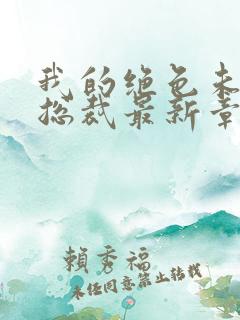 我的绝色未
总裁最新章
賴秀福
未经同意禁止转载